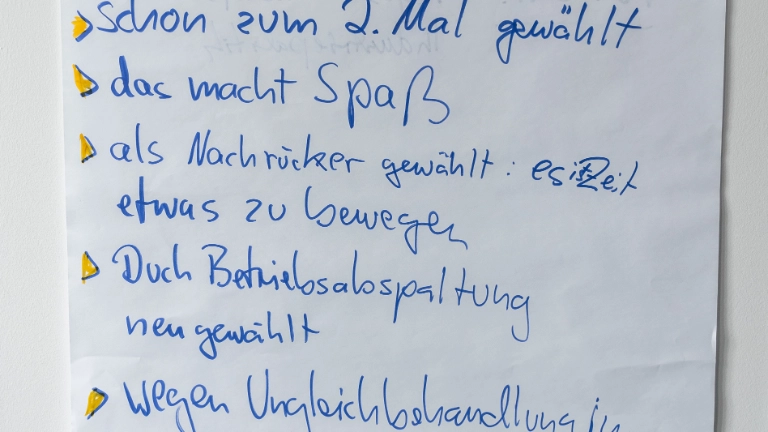 schon zum 2. Mal gewählt
das macht Spaß
als Nachrücker gewählt: es ist Zeit
etwas zu bewegen
Duch Betriebsabspaltung
neu gewählt
wegen Ungleichbehandlung in